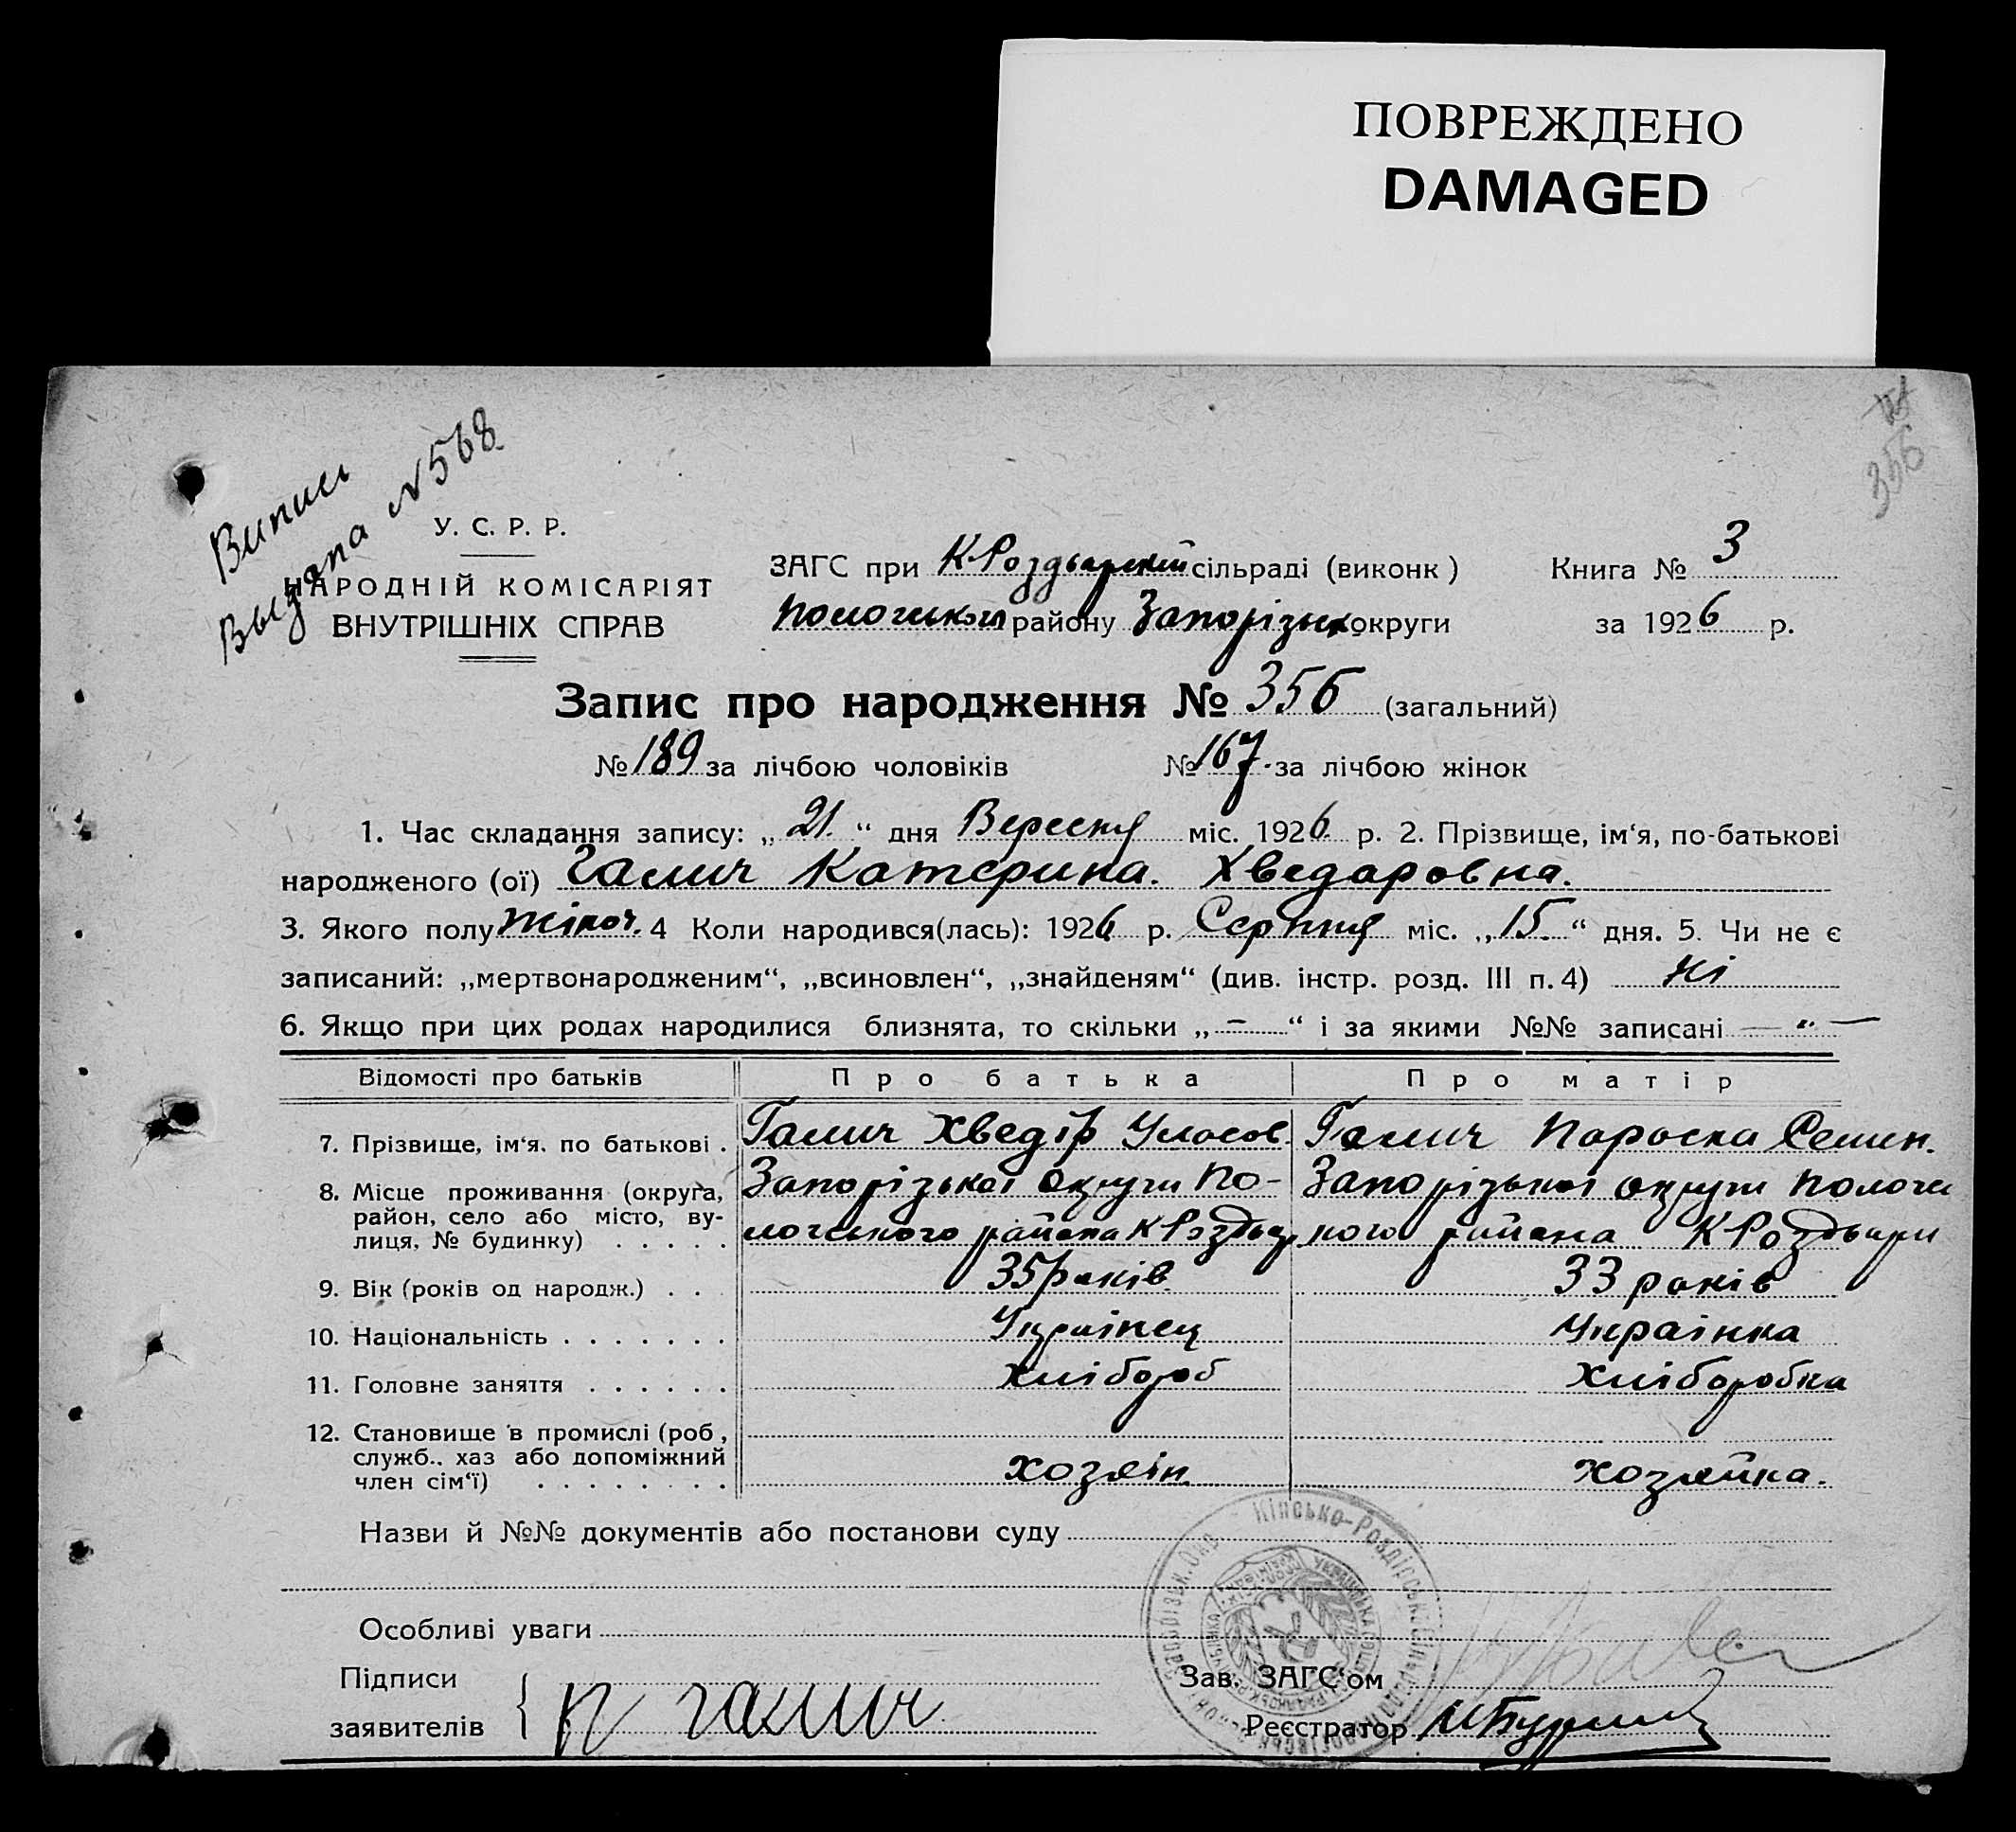 ПОВРЕЖДЕНО
DAMAGED
356
Випись
Выдана N 568
У. С. Р. Р.
НАРОДНІЙ КОМІСАРІЯТ
ВНУТРІШНІХ СПРАВ
ЗАГС при К Роздварській сільраді (виконк) Книга № 3
Пологського району Запорізько округи за 1926 р.
Запис про народження № 356 (загальний)
№ 189 за лічбою чоловіків № 167. за лічбою жінок
1. Час складання запису: „ 21. “ дня Вересня міс. 1926 р. 2. Прізвище, ім‘я, по-батькові
народженого (ої) Галич Катерина. Хведаровна.
3. Якого полу жіноч. 4 Коли народився(лась): 1926 р. Серпня міс. „ 15. “ дня. 5. Чи не є
записаний: „мертвонародженим“, „всиновлен“, „знайденям“ (див. інстр. розд. III п. 4) Ні
6. Якщо при цих родах народилися близнята, то скільки „ – “ і за якими №№ записані — „ —
Відомості про батьків Про батька Про матір
7. Прізвище, ім‘я. по батькові . Галич Хведір Уласов. Галич Пароска Семен.
8. Місце проживання (округа, Запорізької округи По- Запорізької округи Пологс
район, село або місто, ву- логського района К Роздвар ного района К Роздвари
лиця, № будинку) . . . . .
9. Вік (років од народж.) . . 35 років 33 років
10. Національність . . . . . . . Українец Українка
11. Головне заняття . . . . . . Хлібороб Хліборобка
12. Становище в промислі (роб,
служб.. хаз або допоміжний хозяін хозяйка.
член сім‘ї) . . . . . . . .
Назви й №№ документів або постанови суду
Кінсько-Роздірська Сільрада
Запорізьк. Окр
Особливі уваги
Підписи Зав. ЗАГС‘ом
заявителів П Галич Реєстратор